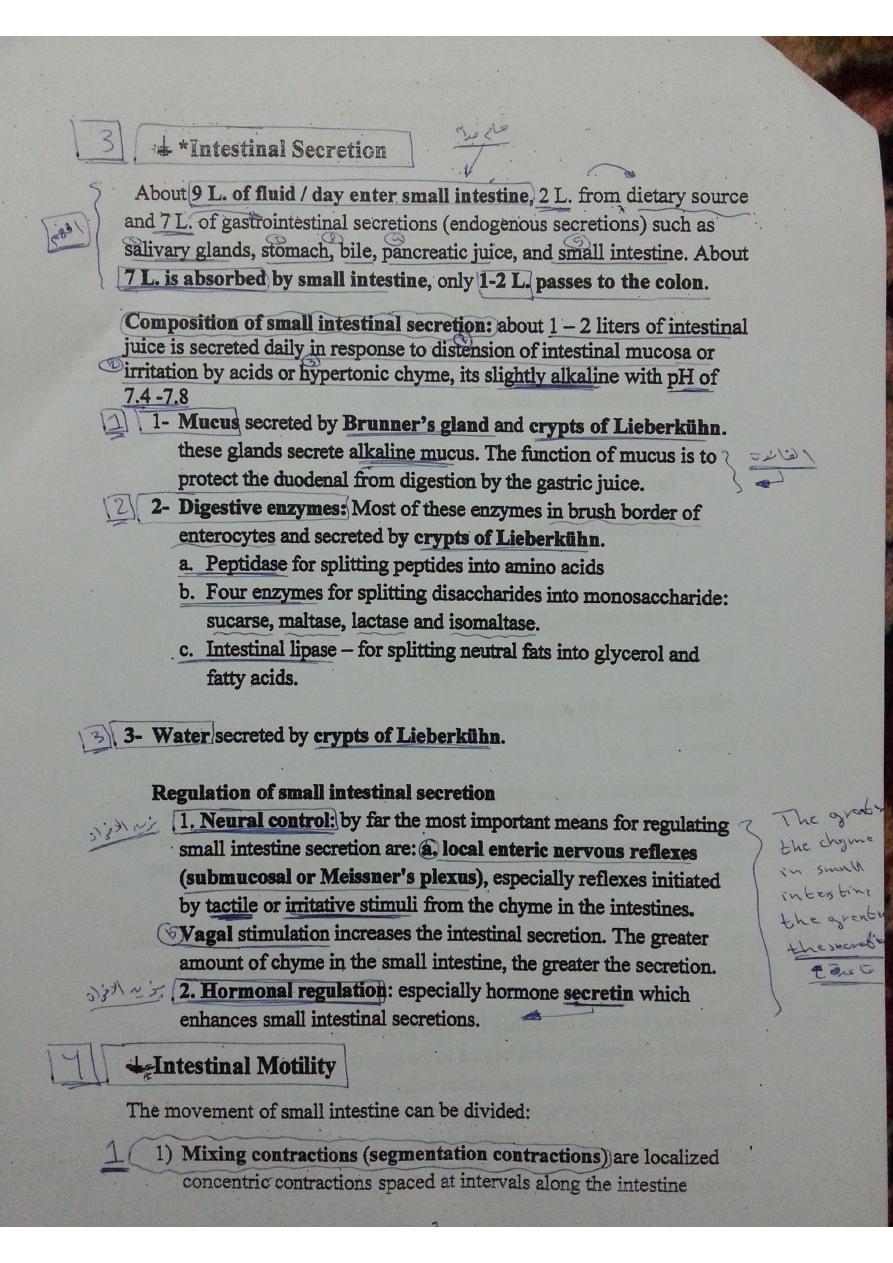 3
*Intestinal Secretion
هام جدا
About 9 L. of fluid / day enter small intestine, 2 L. from dietary source
and 7 L. of gastrointestinal secretions (endogenous secretions) such as
salivary glands, stomach, bile, pancreatic juice, and small intestine. About
7 L. is absorbed by small intestine, only 1-2 L. passes to the colon.
Composition of small intestinal secretion: about 1 – 2 liters of intestinal
juice is secreted daily in response to distension of intestinal mucosa or
irritation by acids or hypertonic chyme, its slightly alkaline with pH of
7.4 -7.8
1 1- Mucus secreted by Brunner's gland and crypts of Lieberkühn.
these glands secrete alkaline mucus. The function of mucus is to
protect the duodenal from digestion by the gastric juice.
الفائدة
2 2- Digestive enzymes: Most of these enzymes in brush border of
enterocytes and secreted by crypts of Lieberkühn.
a. Peptidase for splitting peptides into amino acids
b. Four enzymes for splitting disaccharides into monosaccharide:
sucarse, maltase, lactase and isomaltase.
c. Intestinal lipase – for splitting neutral fats into glycerol and
fatty acids.
3 3- Water secreted by crypts of Lieberkühn.
Regulation of small intestinal secretion
1. Neural control: by far the most important means for regulating
small intestine secretion are: a. local enteric nervous reflexes
(submucosal or Meissner's plexus), especially reflexes initiated
by tactile or irritative stimuli from the chyme in the intestines.
Vagal stimulation increases the intestinal secretion. The greater
amount of chyme in the small intestine, the greater the secretion.
The great
the chyme
in small
intestin
the great
the secreti
2. Hormonal regulation: especially hormone secretin which
enhances small intestinal secretions.
4
Intestinal Motility
The movement of small intestine can be divided:
1 1) Mixing contractions (segmentation contractions) are localized
concentric contractions spaced at intervals along the intestine